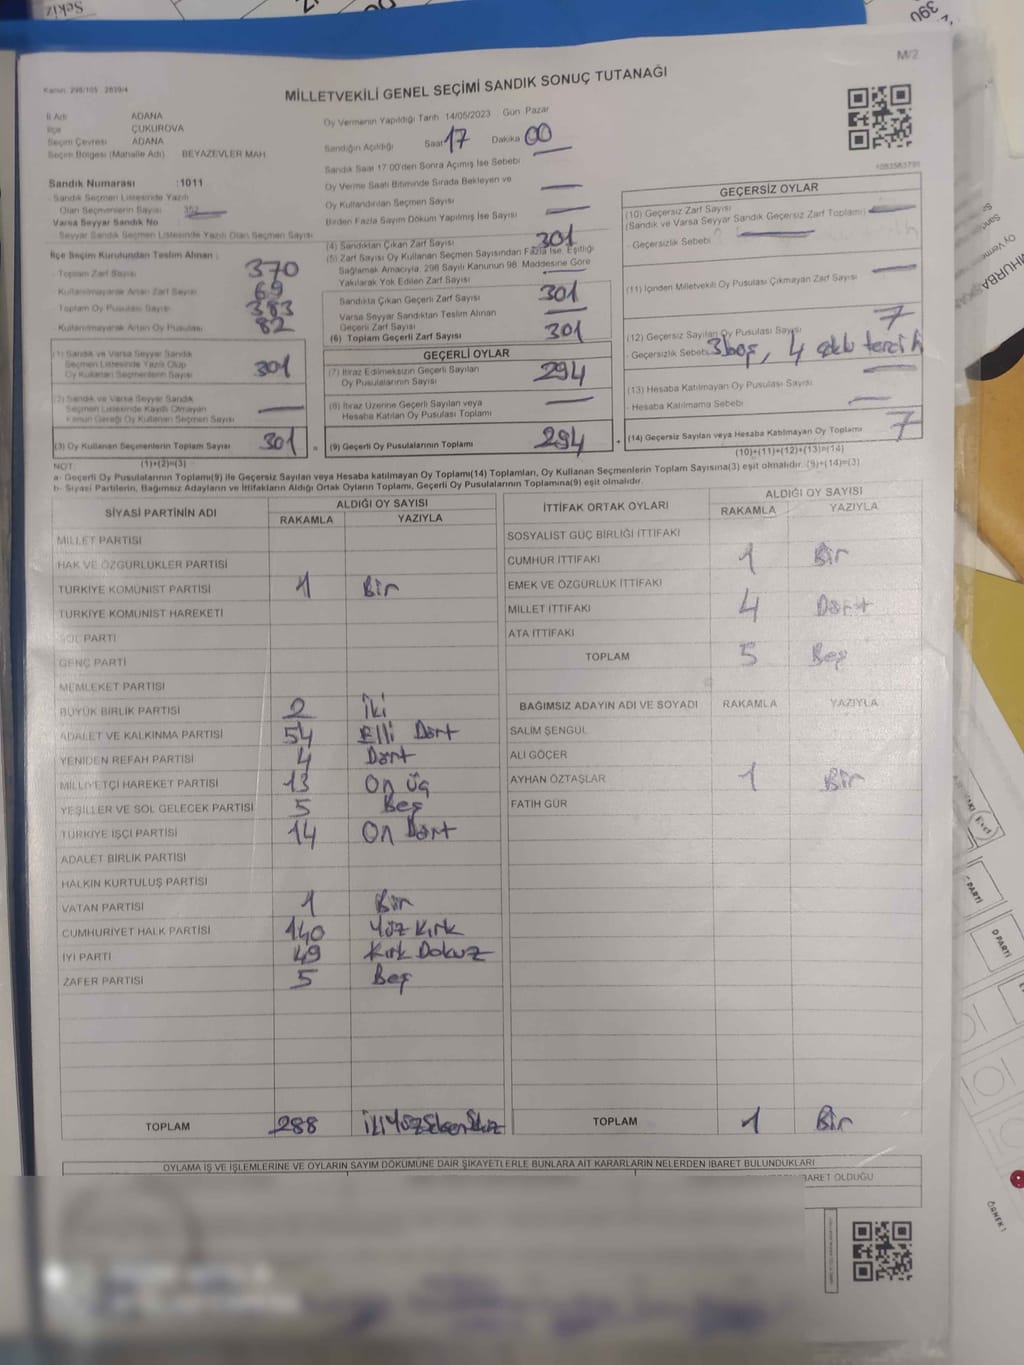 Sekiz
390
M/2
Kanun: 298/105 2839/4
MİLLETVEKİLİ GENEL SEÇİMİ SANDIK SONUÇ TUTANAĞI
İl Adı ADANA
İlçe ÇUKUROVA
Seçim Çevresi ADANA
Seçim Bölgesi (Mahalle Adı) BEYAZEVLER MAH.
Sandık Numarası :1011
Sandık Seçmen Listesinde Yazılı
Olan Seçmenlerin Sayısı 352
Varsa Seyyar Sandık No
Seyyar Sandık Seçmen Listesinde Yazılı Olan Seçmen Sayısı
İlçe Seçim Kurulundan Teslim Alınan :
- Toplam Zarf Sayısı 370
- Kullanılmayarak Artan Zarf Sayısı 69
- Toplam Oy Pusulası Sayısı 383
- Kullanılmayarak Artan Oy Pusulası 82
(1) Sandık ve Varsa Seyyar Sandık
Seçmen Listesinde Yazılı Olup
Oy Kullanan Seçmenlerin Sayısı 301
(2) Sandık ve Varsa Seyyar Sandık
Seçmen Listesinde Kayıtlı Olmayan
Kanun Gereği Oy Kullanan Seçmen Sayısı
(3) Oy Kullanan Seçmenlerin Toplam Sayısı 301 =
Oy Vermenin Yapıldığı Tarih 14/05/2023 Gün Pazar
Sandığın Açıldığı Saat 17 Dakika 00
Sandık Saat 17:00'den Sonra Açımış İse Sebebi
Oy Verme Saati Bitiminde Sırada Bekleyen ve
Oy Kullandırılan Seçmen Sayısı
Birden Fazla Sayım Döküm Yapılmış İse Sayısı
(4) Sandıktan Çıkan Zarf Sayısı 301
(5) Zarf Sayısı Oy Kullanan Seçmen Sayısından Fazla İse, Eşitliği
Sağlamak Amacıyla, 298 Sayılı Kanunun 98. Maddesine Göre
Yakılarak Yok Edilen Zarf Sayısı
Sandıkta Çıkan Geçerli Zarf Sayısı 301
Varsa Seyyar Sandıktan Teslim Alınan
Geçerli Zarf Sayısı
(6) Toplam Geçerli Zarf Sayısı 301
GEÇERLİ OYLAR
(7) İtiraz Edilmeksizin Geçerli Sayılan
Oy Pusulalarının Sayısı 294
(8) İtiraz Üzerine Geçerli Sayılan veya
Hesaba Katılan Oy Pusulası Toplamı
(9) Geçerli Oy Pusulalarının Toplamı 294 +
GEÇERSİZ OYLAR
(10) Geçersiz Zarf Sayısı
(Sandık ve Varsa Seyyar Sandık Geçersiz Zarf Toplamı)
- Geçersizlik Sebebi
(11) İçinden Milletvekili Oy Pusulası Çıkmayan Zarf Sayısı
(12) Geçersiz Sayılan Oy Pusulası Sayısı 7
- Geçersizlik Sebebi 3 boş, 4 çoklu tercih
(13) Hesaba Katılmayan Oy Pusulası Sayısı
- Hesaba Katılmama Sebebi
(14) Geçersiz Sayılan veya Hesaba Katılmayan Oy Toplamı 7
NOT: (1)+(2)=(3) (10)+(11)+(12)+(13)=(14)
a- Geçerli Oy Pusulalarının Toplamı(9) ile Geçersiz Sayılan veya Hesaba katılmayan Oy Toplamı(14) Toplamları, Oy Kullanan Seçmenlerin Toplam Sayısına(3) eşit olmalıdır. (9)+(14)=(3)
b- Siyasi Partilerin, Bağımsız Adayların ve İttifakların Aldığı Ortak Oyların Toplamı, Geçerli Oy Pusulalarının Toplamına(9) eşit olmalıdır.
SİYASİ PARTİNİN ADI ALDIĞI OY SAYISI
RAKAMLA YAZIYLA
MİLLET PARTİSİ
HAK VE ÖZGÜRLÜKLER PARTİSİ
TÜRKİYE KOMÜNİST PARTİSİ 1 Bir
TÜRKİYE KOMÜNİST HAREKETİ
SOL PARTİ
GENÇ PARTİ
MEMLEKET PARTİSİ
BÜYÜK BİRLİK PARTİSİ 2 İki
ADALET VE KALKINMA PARTİSİ 54 Elli Dört
YENİDEN REFAH PARTİSİ 4 Dört
MİLLİYETÇİ HAREKET PARTİSİ 13 On üç
YEŞİLLER VE SOL GELECEK PARTİSİ 5 Beş
TÜRKİYE İŞÇİ PARTİSİ 14 On Dört
ADALET BİRLİK PARTİSİ
HALKIN KURTULUŞ PARTİSİ
VATAN PARTİSİ 1 Bir
CUMHURİYET HALK PARTİSİ 140 Yüz Kırk
İYİ PARTİ 49 Kırk Dokuz
ZAFER PARTİSİ 5 Beş
TOPLAM 288 İkiYüzSeksenSekiz
İTTİFAK ORTAK OYLARI ALDIĞI OY SAYISI
RAKAMLA YAZIYLA
SOSYALİST GÜÇ BİRLİĞİ İTTİFAKI
CUMHUR İTTİFAKI 1 Bir
EMEK VE ÖZGÜRLÜK İTTİFAKI
MİLLET İTTİFAKI 4 Dört
ATA İTTİFAKI
TOPLAM 5 Beş
BAĞIMSIZ ADAYIN ADI VE SOYADI RAKAMLA YAZIYLA
SALİM ŞENGÜL
ALİ GÖÇER
AYHAN ÖZTAŞLAR 1 Bir
FATİH GÜR
TOPLAM 1 Bir
OYLAMA İŞ VE İŞLEMLERİNE VE OYLARIN SAYIM DÖKÜMÜNE DAİR ŞİKAYETLERLE BUNLARA AİT KARARLARIN NELERDEN İBARET BULUNDUKLARI
BARET OLDUĞU
ÖRNEK 1